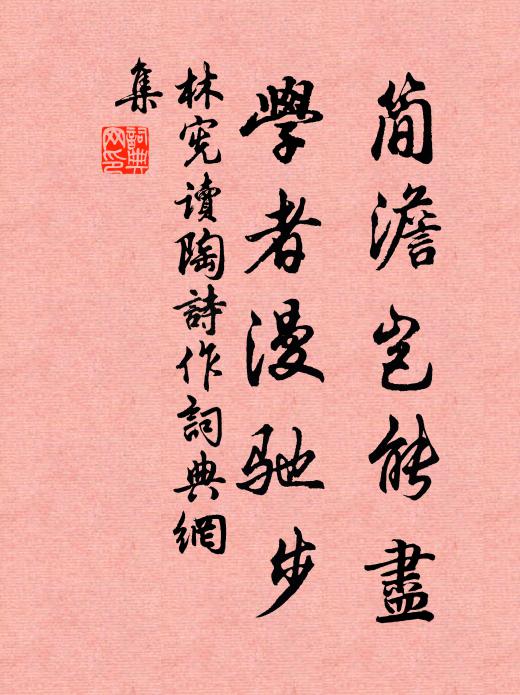 簡澹豈能盡
學者漫馳步
林宪讀陶詩作詞典網
集
詞典
网印